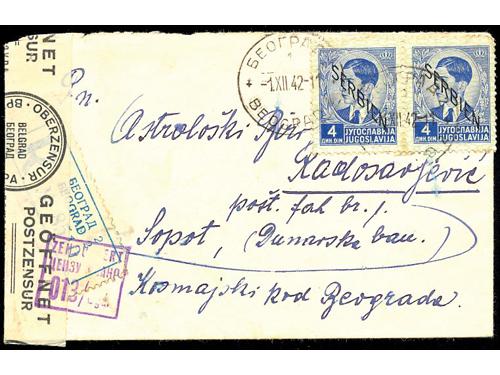 БЕОГРАД
-1.XII.42-1
BEOGRAD
SERBIEN
SERBIEN
4
ДИН. DIN.
ЈУГОСЛАВИЈА
JUGOSLAVIJA
4
ДИН. DIN.
ЈУГОСЛАВИЈА
JUGOSLAVIJA
XII 42
GEÖFFNET
POSTZENSUR
OBERZENSUR
BELGRAD
БЕОГРАД
БЕОГРАД 2
BEOGRAD
P.n.
Astrološki
Radosavljević
pošt. fah br. 1.
Sopot, (Dunavska ban.
Kosmajski kod Beograda.